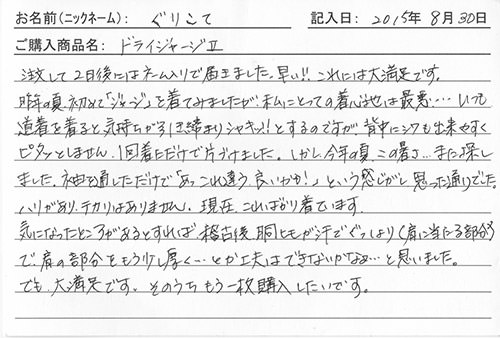 お名前(ニックネーム): ぐりこて 記入日: 2015年 8月 30日
ご購入商品名: ドライジャージⅡ
注文して2日後にはネーム入りで届きました。早い!! これには大満足です。
昨年の夏、初めて「ジャージ」を着てみましたが、私にとっての着心地は最悪… いつも
道着を着ると気持ちが引き締まりシャキッ!! とするのですが、背中にシワも出来やすく
ピタッとしません。1回着ただけで片づけました。しかし、今年の夏、この暑さ… また探し
ました。袖を通しただけで「あっこれ違う、良いかも!」という感じがし、思った通りでした。
ハリがあり、テカリはありません。現在、こればかり着ています。
気になったところがあるとすれば、稽古後、胴ヒモが汗でぐっしょり(肩に当たる部分)
で肩の部分をもう少し厚く…とか工夫はできないかなぁ…と思いました。
でも、大満足です。そのうちもう一枚購入したいです。